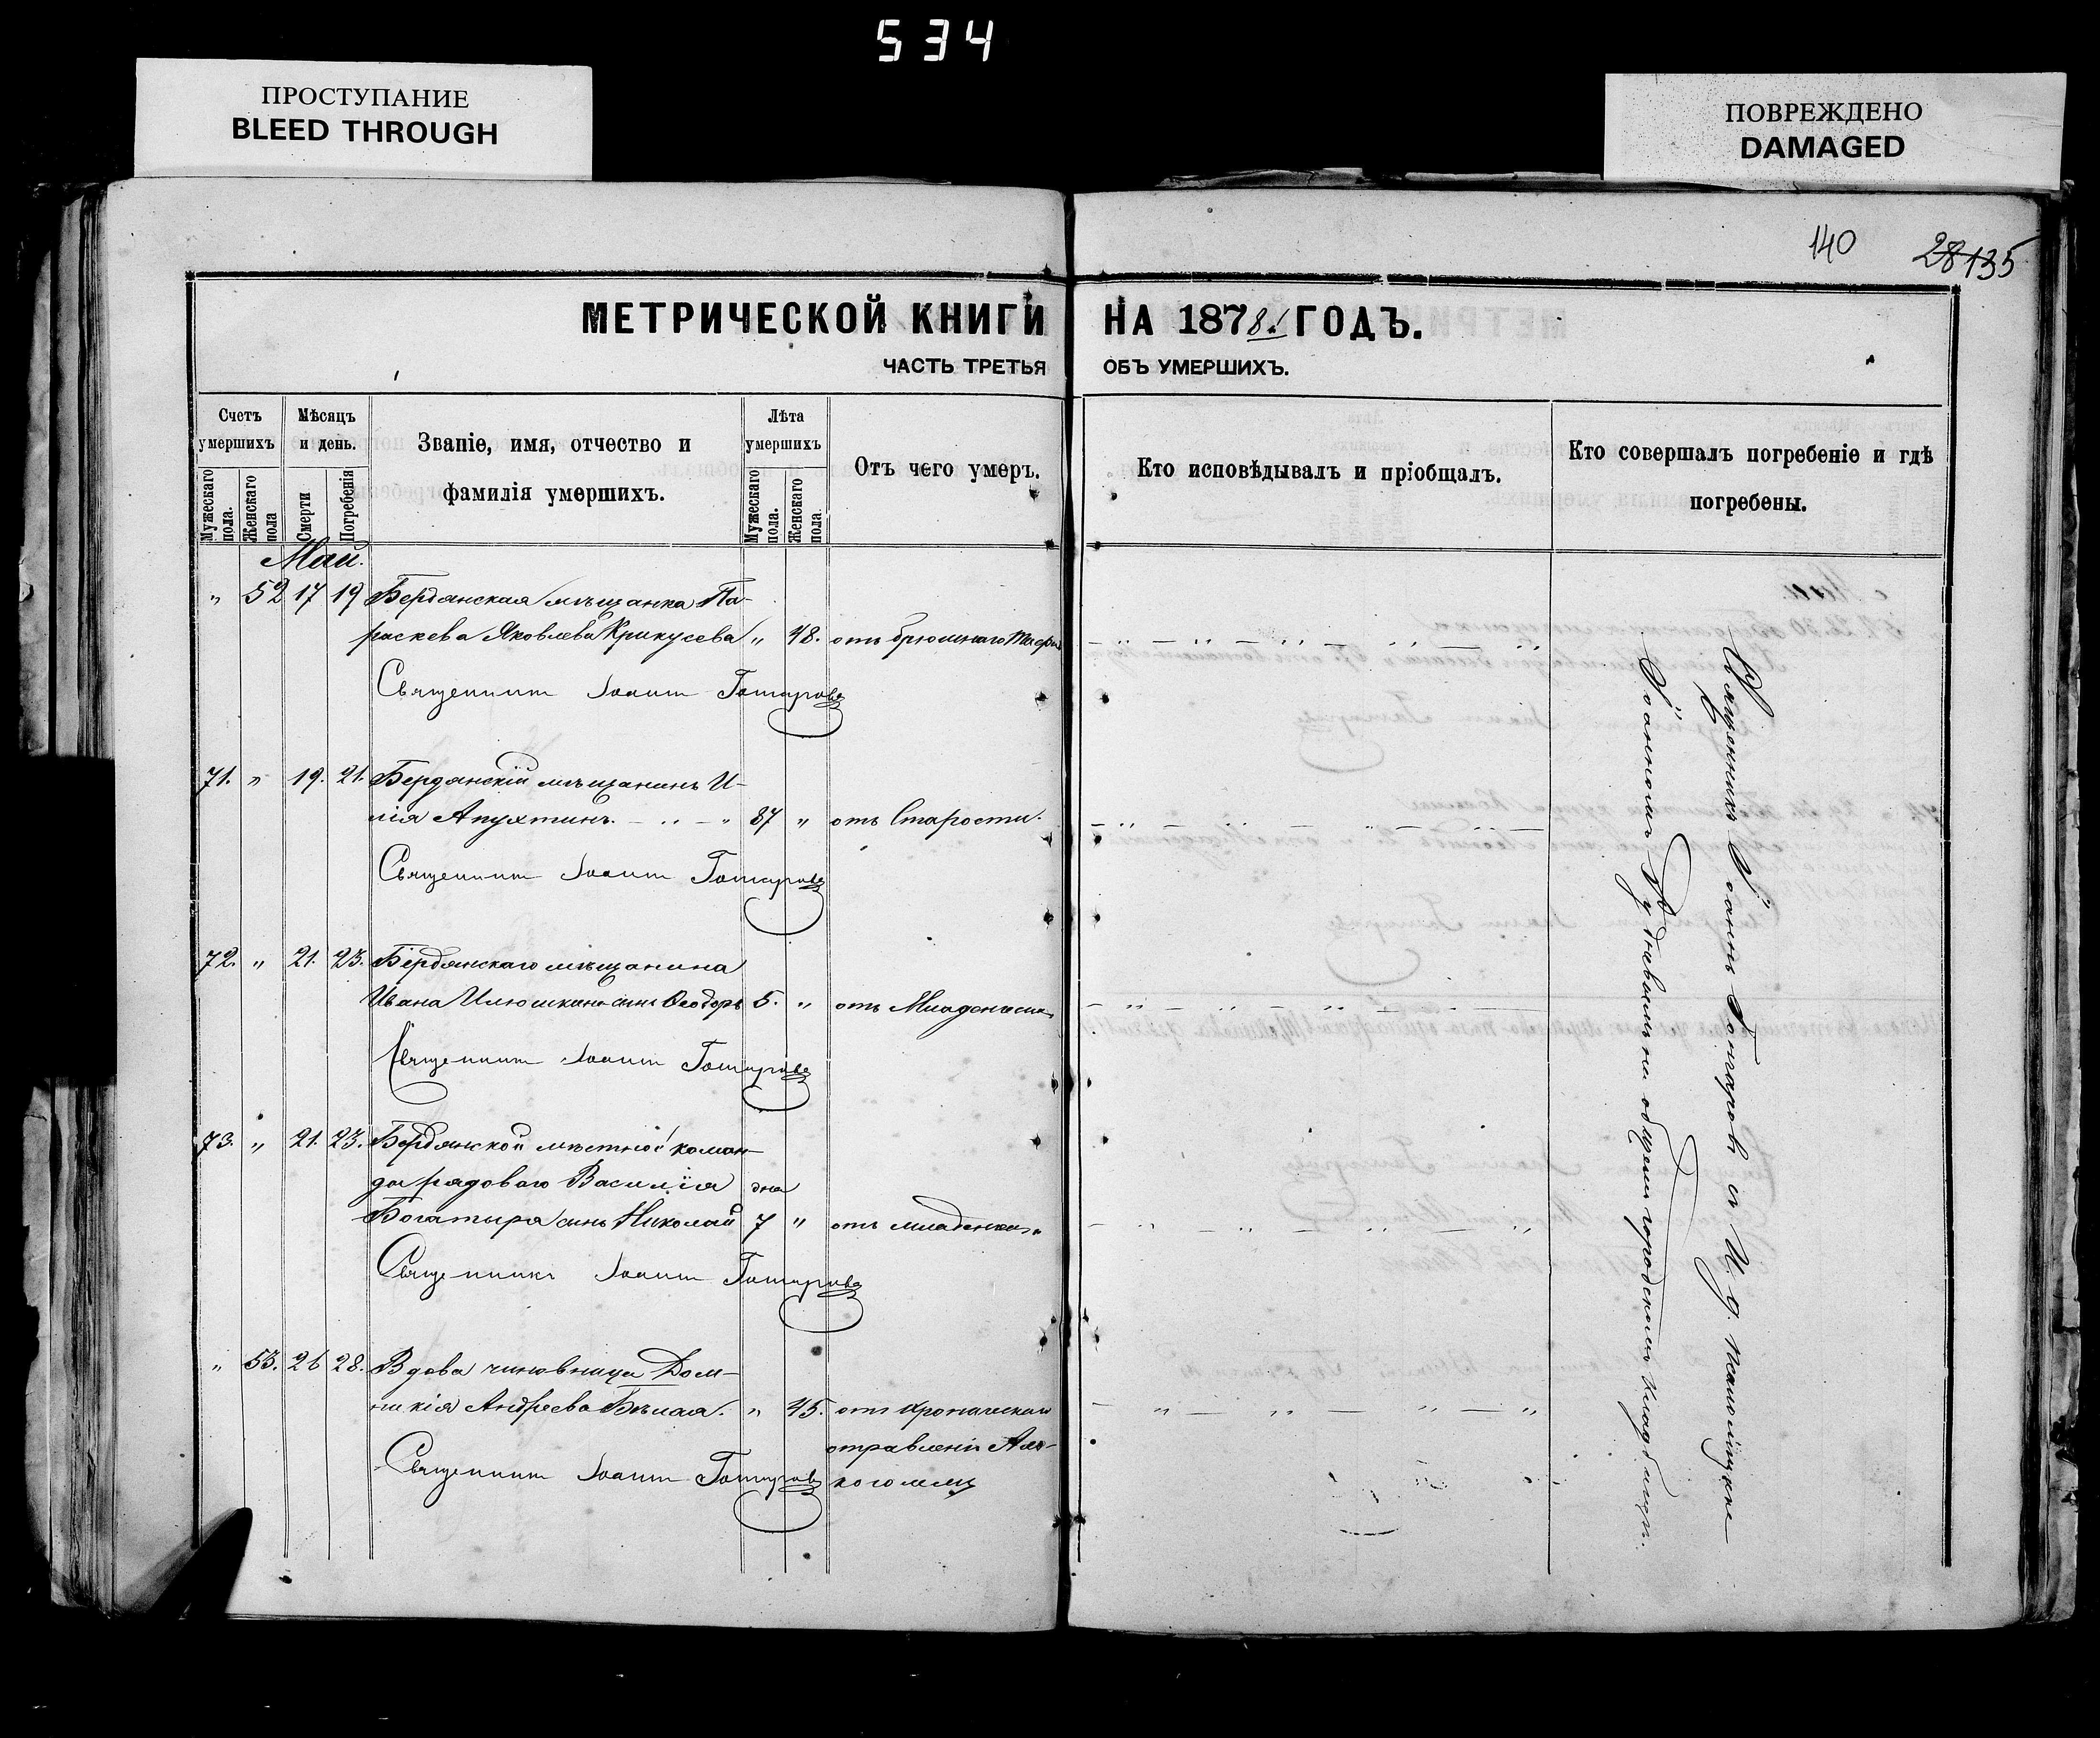 534
ПРОСТУПАНИЕ
BLEED THROUGH
ПОВРЕЖДЕНО
DAMAGED
140 28 135
МЕТРИЧЕСКОЙ КНИГИ НА 1878 ГОДЪ.
ЧАСТЬ ТРЕТЬЯ ОБЪ УМЕРШИХЪ.
Счетъ умершихъ
Мужескаго пола.
Женскаго пола
Мѣсяцъ и день.
Смерти
Погребенія
Званіе, имя, отчество и
фамилія умершихъ.
Лѣта умершихъ
Мужескаго пола.
Женскаго пола
Отъ чего умеръ.
Кто исповѣдывалъ и пріобщалъ.
Кто совершалъ погребеніе и гдѣ
погребены.
Май.
" 52 17 19 Бердянская мѣщанка Па-
раскева Яковлева Крикусева " 48. отъ брюшнаго
Священникъ Іоаннъ
71. " 19. 21. Бердянскій мѣщанинъ И-
лія Апухтинъ. 87 " отъ Старости.
Священникъ Іоаннъ
72. " 21. 23. Бердянскаго мѣщанина
Ивана Илюшкина сынъ Ѳеодоръ 5. " отъ
Священникъ Іоаннъ
73. " 21. 23. Бердянской мѣстной коман-
ды рядоваго Василія дня
Богатыря сынъ Николай 7 " отъ
Священникъ Іоаннъ
" 53. 26 28. Вдова чиновница Дом-
никія Андреева Бѣлая. " 45. отъ хроническаго
отравленія Ал-
коголемъ
Священникъ Іоаннъ
Священникъ Іоаннъ и И. д. псаломщика
Іоанномъ на общемъ городскомъ кладбищѣ.